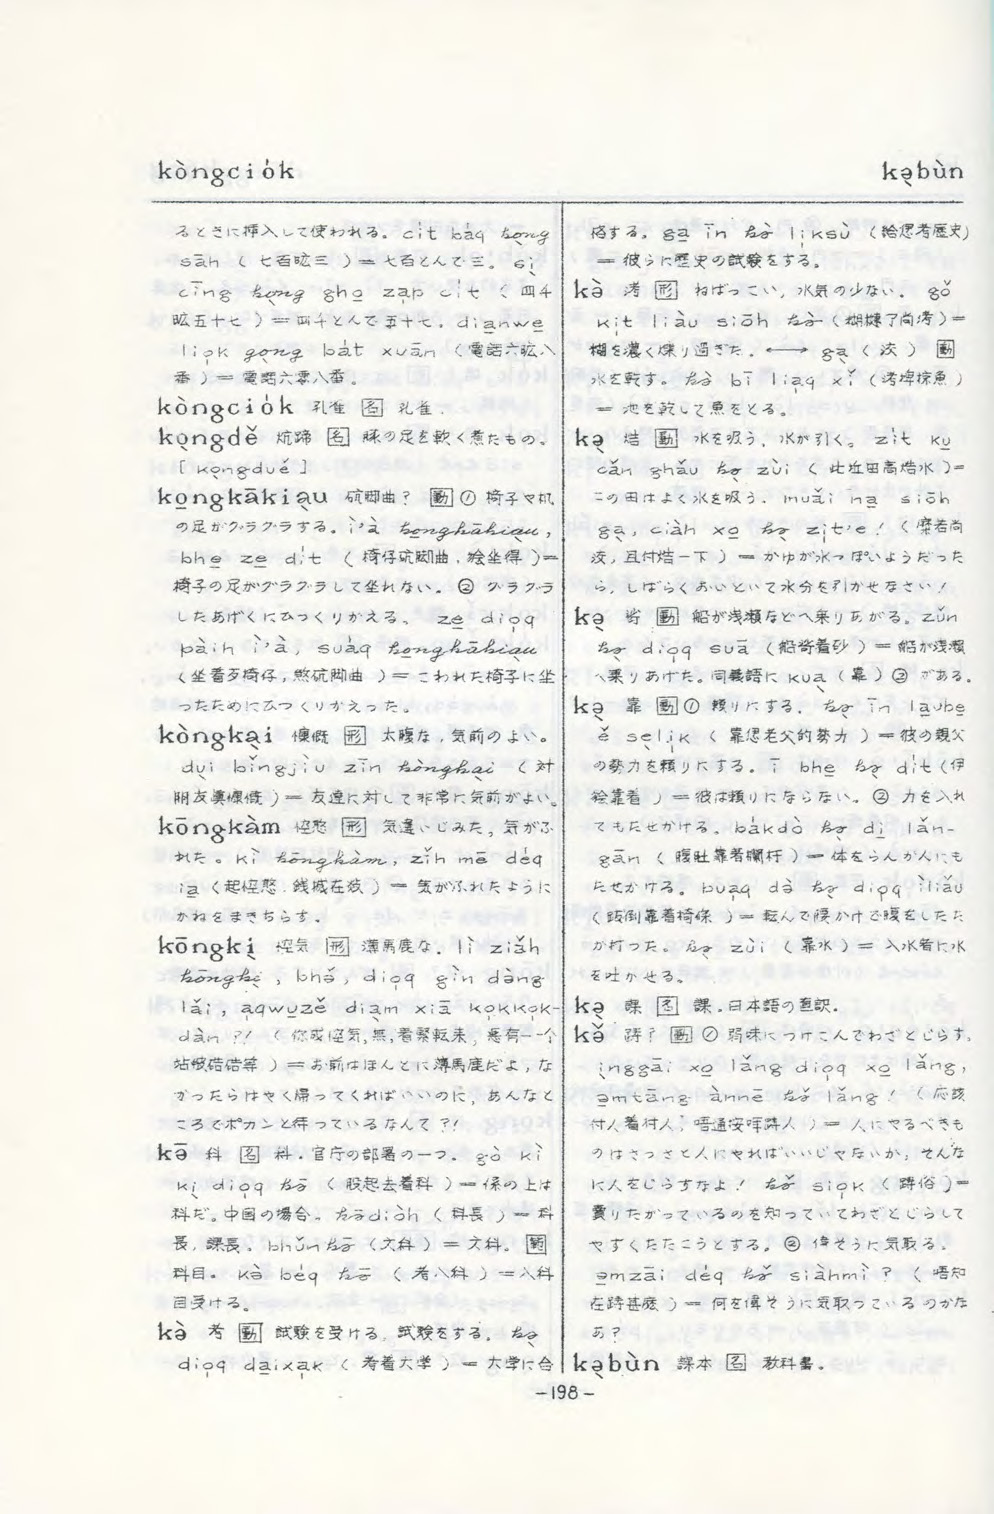 kòngciȯk
kə̣bùn
るときに挿入して使われる。cit baq kong
sāh ( 七百眩三 ) = 七百とんで三。sì
cīng kong gho zap cit ( 四千
眩五十七 ) = 四千とんで五十七。diạnwe
liok gong bat xuān ( 電話六眩八
番 ) = 電話六零八番。
kòngciȯk 孔雀 [名] 孔雀.
kọngdě 炕蹄 [名] 豚の足を軟く煮たもの。
[ kọngduě ]
kọngkākiạu 硫脚曲? [動] ① 椅子や机
の足がグラグラする。ì'à kọngkākiạu,
bhe ze dit ( 椅仔硫脚曲, 絵坐得 )=
椅子の足がグラグラして坐れない。② グラグラ
したあげくにひっくりかえる。 ze dioq
pàih ì'à, suàq kọngkākiạu
( 坐着歹椅仔, 煞硫脚曲 ) = こわれた椅子に坐
ったためにひっくりかえった。
kòngkại 慷慨 [形] 太腹な, 気前のよい。
dụi bǐngjiu zīn kòngkại ( 対
朋友真慷慨 ) = 友達に対して非常に気前がよい。
kōngkàm 悾憨 [形] 気違いじみた, 気がふ
れた。kì kōngkàm, zih mē deq
ia ( 起悾憨, 銭城在掖 ) = 気がふれたように
かねをまきちらす.
kōngkị 悾気 [形] 薄馬鹿な. lì ziǎh
kōngkị, bhǒ, dioq gìn dàng
lǎi, aqwuzě diạm xiā kọkkọk-
dàn ?! ( 你成悾気, 無, 着緊転来, 悪有一个
站硋硞硞等 ) = お前はほんとに薄馬鹿だよ, な
かったらはやく帰ってくればいいのに, あんなと
ころでポカンと待っているなんて?!
kə̄ 科 [名] 科. 官庁の部署の一つ. gò kì
kị dioq kə̄ ( 股起去着科 ) = 係の上は
科だ。中国の場合. kə̄diòh ( 科長 ) = 科
長, 課長. bhǔnkə̄ ( 文科 ) = 文科。[範]
科目。kà beq kə̄ ( 考八科 ) = 八科
目受ける。
kə̀ 考 [動] 試験を受ける, 試験をする. kə̀
dioq dạixak ( 考着大学 ) = 大学に合
格する。gā īn kə̀ liksù ( 給怹考歴史)
= 彼らに歴史の試験をする。
kà 洘 [形] ねばっこい, 水気の少ない. gǒ
kit liàu siōh kə̀ ( 糊𥻵了尚洘 ) =
糊を濃く煉り過ぎた. ⟷ gạ ( 洨 ) [動]
水を乾す。kə̀ bī liaq xǐ ( 洘埤掠魚 )
= 池を乾して魚をとる。
kə̣ 焅 [動] 水を吸う, 水が引く。zit ku
cǎn ghǎu kə̣ zùi ( 此丘田高焅水 )=
この田はよく水を吸う. muǎi na siōh
gạ, ciàh xọ kə̣ zit'e! ( 糜若尚
洨, 且付焅一下 ) = かゆが水っぽいようだった
ら, しばらくおいといて水分を引かせなさい!
kə̣ [動] 船が浅瀬などへ乗りあがる. zǔn
kə̣ dioq suā ( 船 着砂 ) = 船が浅瀬
へ乗りあげた。同義語に kuạ ( 靠 ) ② がある.
kə̣ 靠 [動] ① 頼りにする. kə̣ īn lạube
ě selik ( 靠怹老父的勢力 ) = 彼の親父
の勢力を頼りにする。ī bhe kə̣ dit (伊
絵靠着 ) = 彼は頼りにならない。② 力を入れ
てもたせかける。bakdò kə̣ dị lǎn-
gān ( 腹肚靠着欄杆 ) = 体をらんかんにも
たせかける。buaq dà kə̣ dioq ìliǎu
( 跋倒靠着椅條 ) = 転んで腰かけで腹をしたた
か打った。kə̣ zùi ( 靠水 ) = 入水者に水
を吐かせる。
kə̣ 課 [名] 課. 日本語の直訳.
kə̌ 踦? [動] ① 弱味につけこんでわざとじらす。
ịnggāi xọ lǎng dioq xọ lǎng,
əmtāng ànnē kə̌ lǎng! ( 応該
付人着付人, 唔通安呢踦人 ) = 人にやるべきも
のはさっさと人にやればいいじゃないか, そんな
に人をじらすなよ! kə̌ siok ( 踦俗 )=
売りたがっているのを知っていてわざとじらして
やすくたたこうとする。② 偉そうに気取る.
əmzāi deq kə̌ siàhmì? ( 唔知
在踦甚麼 ) = 何を偉そうに気取っているのかな
あ?
kə̣bùn 課本 [名] 教科書.
-198-